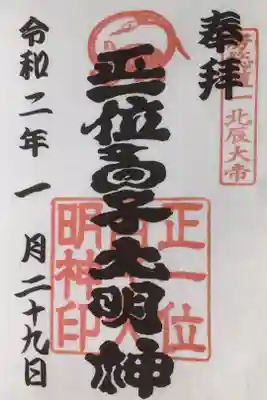 奉拝
北辰大帝
正一位
子大明神
正一位
大
明神印
令和二年一月二十九日